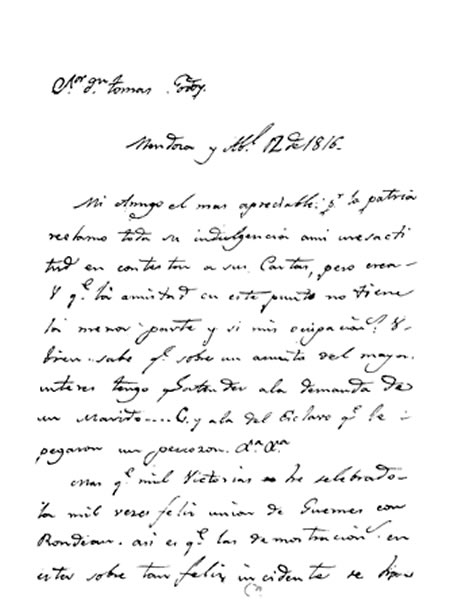 S.or d.n tomas Godoy.
Mendoza y Ab.l 12 de 1816-
Mi Amigo el mas apreciable: p.r la patria
reclamo toda su indulgencia ami inesacti
tud en contestar a sus Cartas, pero crea
V q.e la amistad en este punto no tiene
la menor parte y si mis ocupacion.s V.
bien sabe q.e sobre un asunto del mayor
interes tengo q atender ala demanda de
un Marido.... C. y ala del Esclavo q.e le
pegaron un pescozon. &.a &.a
Mas q.e mil Victorias he selebrado
la mil veses feliz union de Guemes con
Rondeau. asi es q.e las demostracion.s en
esta sobre tan feliz incidente se